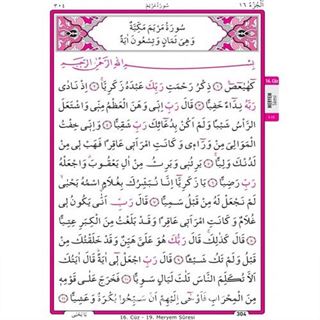 ٣٠٤ سُورَةُ مَرْيَمَ اَلْجُزْءُ ١٦
سُورَةُ مَرْيَمَ مَكِّيَّةٌ
وَهِيَ ثَمَانٍ وَتِسْعُونَ اٰيَةً
بِسْمِ اللّٰهِ الرَّحْمٰنِ الرَّحِيمِ
16. Cüz
MERYEM
Sûresi
كٓهٰيٰعٓصٓ ﴿١﴾ ذِكْرُ رَحْمَتِ رَبِّكَ عَبْدَهُ زَكَرِيَّا ﴿٢﴾ اِذْ نَادٰى
رَبَّهُ نِدَٓاءً خَفِيًّا ﴿٣﴾ قَالَ رَبِّ اِنّ۪ي وَهَنَ الْعَظْمُ مِنّ۪ي وَاشْتَعَلَ
الرَّأْسُ شَيْبًا وَلَمْ اَكُنْ بِدُعَٓائِكَ رَبِّ شَقِيًّا ﴿٤﴾ وَاِنّ۪ي خِفْتُ
الْمَوَالِيَ مِنْ وَرَٓاء۪ي وَكَانَتِ امْرَاَت۪ي عَاقِرًا فَهَبْ ل۪ي مِنْ
لَدُنْكَ وَلِيًّا ﴿٥﴾ يَرِثُن۪ي وَيَرِثُ مِنْ اٰلِ يَعْقُوبَ وَاجْعَلْهُ
رَبِّ رَضِيًّا ﴿٦﴾ يَا زَكَرِيَّٓا اِنَّا نُبَشِّرُكَ بِغُلَامٍ اسْمُهُ يَحْيٰى
لَمْ نَجْعَلْ لَهُ مِنْ قَبْلُ سَمِيًّا ﴿٧﴾ قَالَ رَبِّ اَنّٰى يَكُونُ ل۪ي
غُلَامٌ وَكَانَتِ امْرَاَت۪ي عَاقِرًا وَقَدْ بَلَغْتُ مِنَ الْكِبَرِ عِتِيًّا ﴿٨﴾
قَالَ كَذٰلِكَ قَالَ رَبُّكَ هُوَ عَلَيَّ هَيِّنٌ وَقَدْ خَلَقْتُكَ مِنْ
قَبْلُ وَلَمْ تَكُ شَيْـًٔا ﴿٩﴾ قَالَ رَبِّ اجْعَلْ ل۪ٓي اٰيَةً قَالَ اٰيَتُكَ
اَلَّا تُكَلِّمَ النَّاسَ ثَلٰثَ لَيَالٍ سَوِيًّا ﴿١٠﴾ فَخَرَجَ عَلٰى قَوْمِه۪
مِنَ الْمِحْرَابِ فَاَوْحٰٓى اِلَيْهِمْ اَنْ سَبِّحُوا بُكْرَةً وَعَشِيًّا ﴿١١﴾
16. Cüz - 19. Meryem Sûresi 304